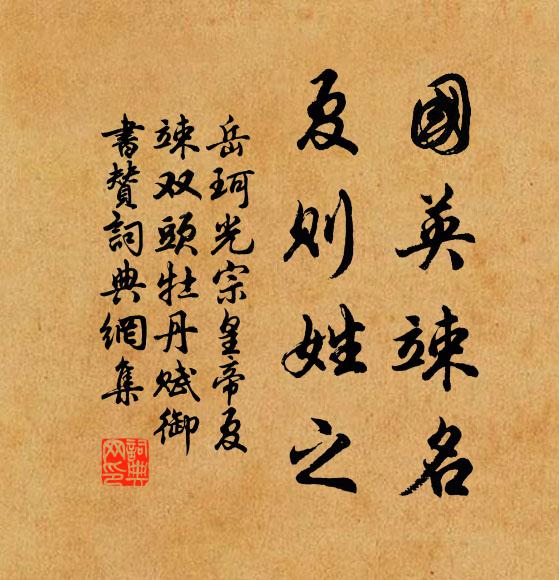 國英竦名
夏則姓之
岳珂光宗皇帝夏
竦双頭牡丹赋御
書贊詞典網集
詞典网印